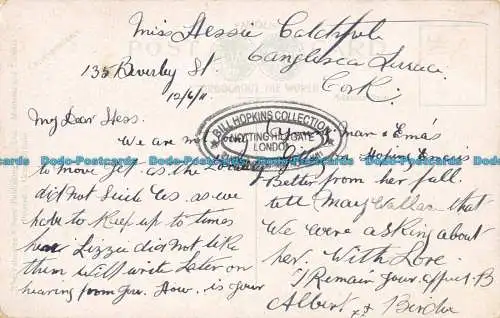 Miss Hessie Catchpole
Canglesea Terrace
Cork.
POST CARD
THROUGHOUT THE WORLD
135 Beverley St.
12/6/11
My Dear Hess.
BILL HOPKINS COLLECTION
NOTTING HILL GATE
LONDON
We are
to move yet as the Locality
did not suit Es. as we
have to Keep up to times
here Lizzie did not like
them will write later on
hearing from you. How is your
man & Ema's
is
Better from her fall.
tell May Wallis that
We were asking about
her. With Love.
I Remain your affect. B
Albert xx Birdie
Dodo-Postcards Dodo-Postcards Dodo-Postcards Dodo-Postcards Dodo-Postcards